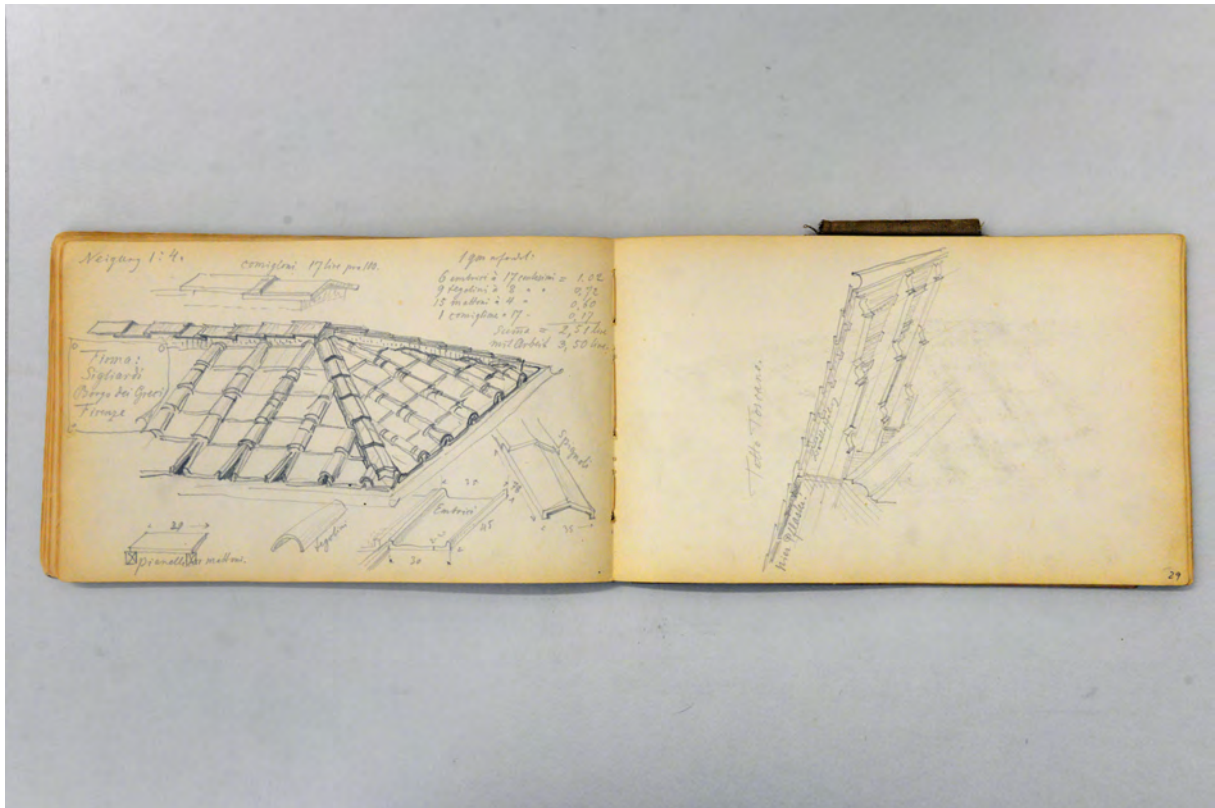 Neigung 1:4.
comignoli 17 lire pro 100.
1 qm erfordert:
6 embrici à 17 centesimi = 1.02
9 tegolini à 8 " " 0,72
15 mattoni à 4 " 0,60
1 comignolo = 17 " 0,17
Summa = 2,51 lire
mit Arbeit 3,50 lire.
Firma:
Sigliardi
Borgo dei Greci
Firenze
Spagnolo
35
30
Embrici
45
30
tegolini
29
pianelle mattoni.
Tetto Toscano.
29